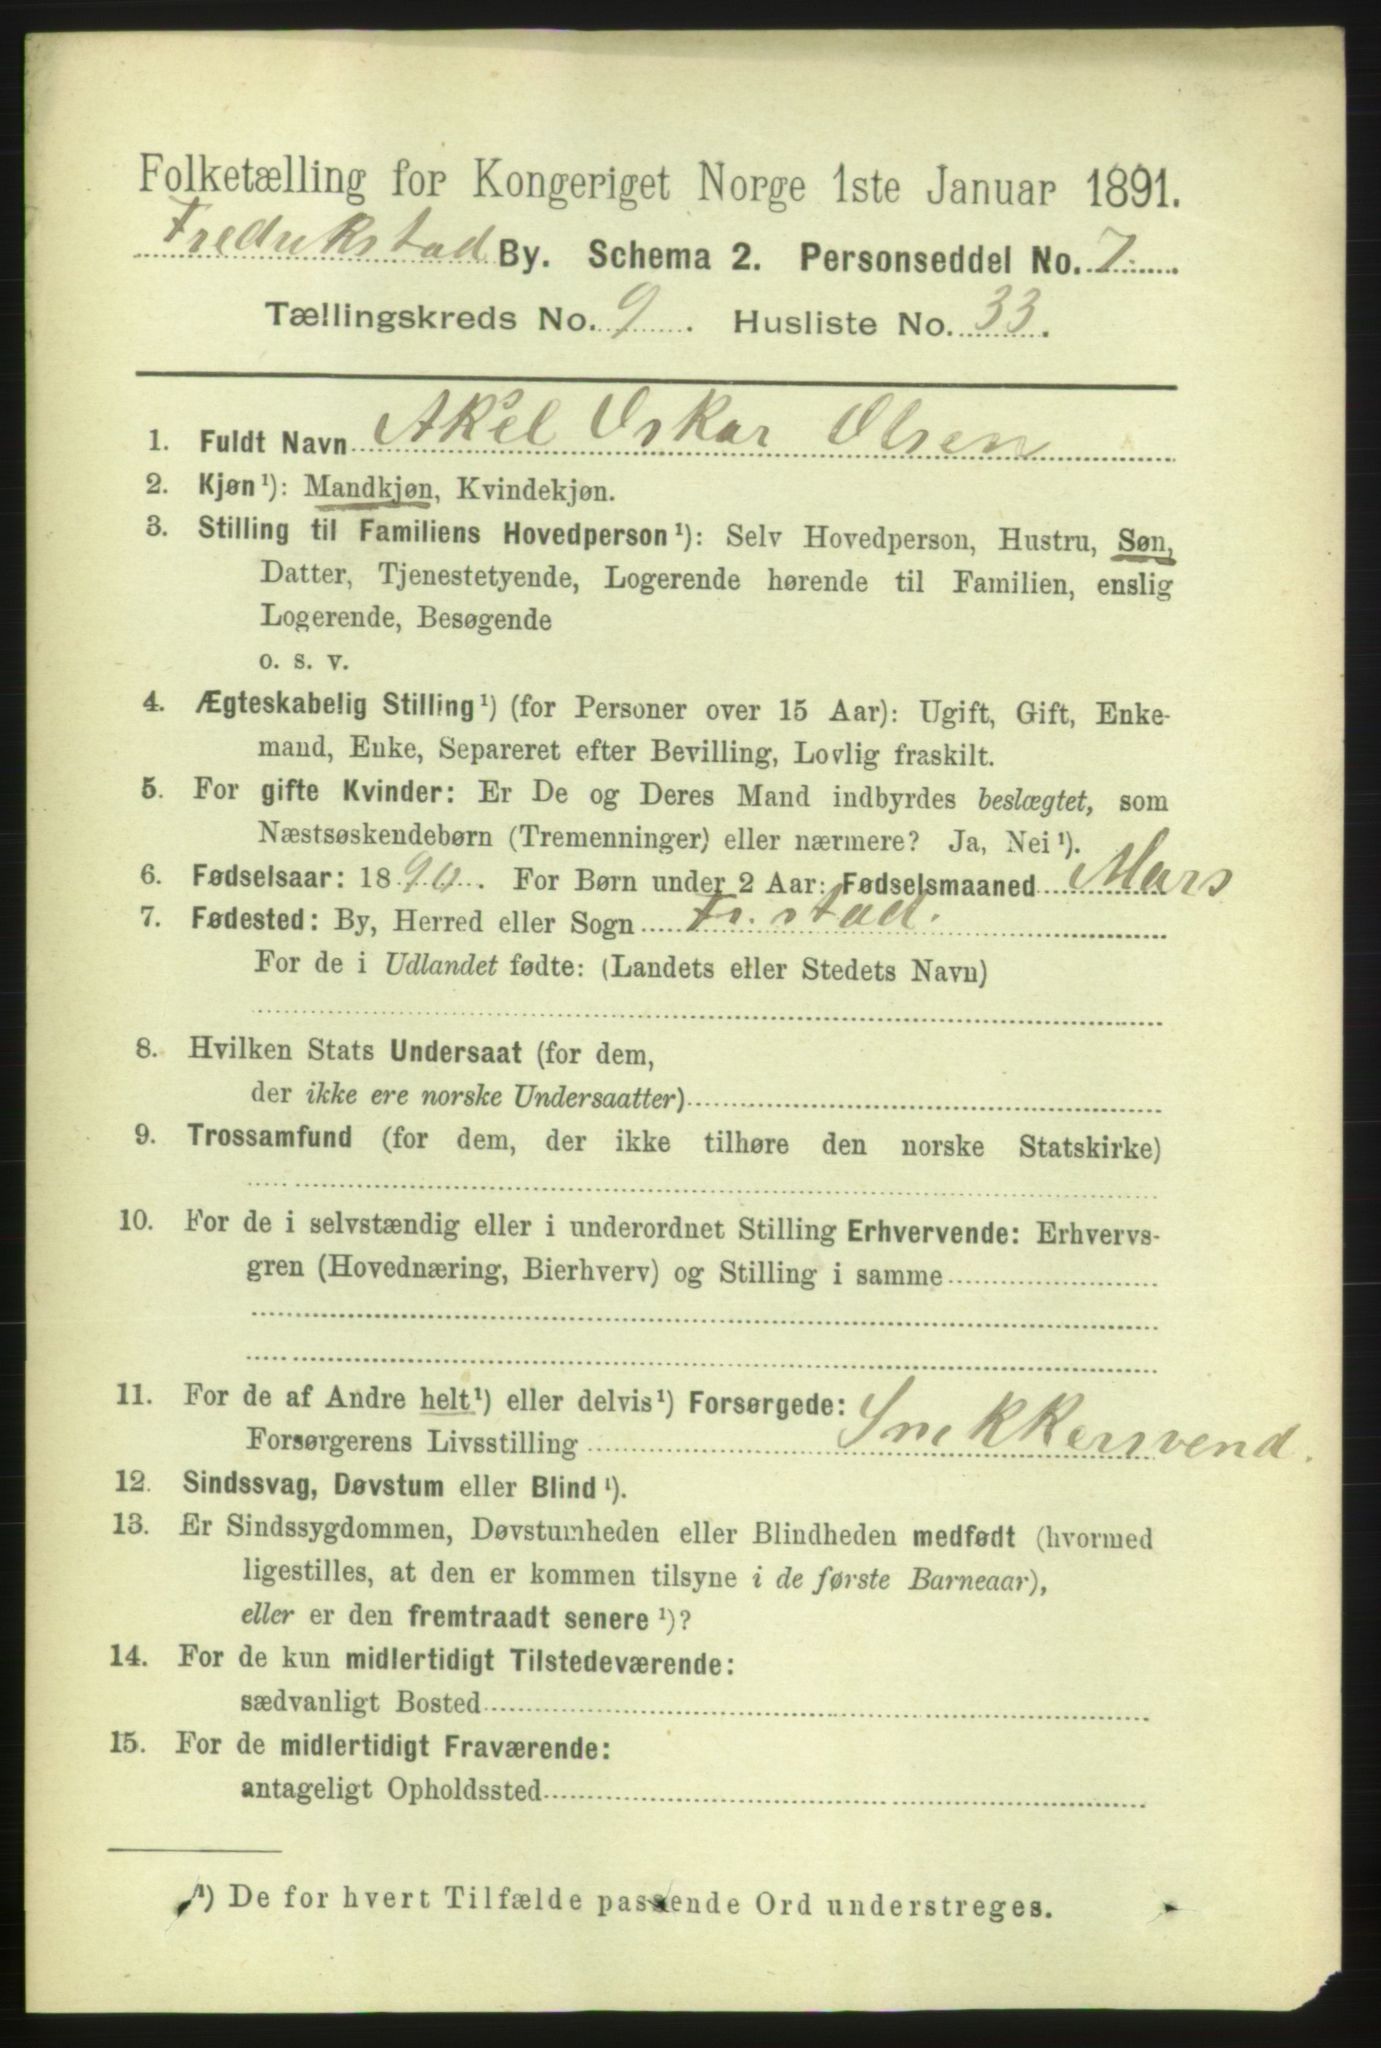 Folketælling for Kongeriget Norge 1ste Januar 1891.
Fredrikstad By. Schema 2. Personseddel No. 7
Tællingskreds No. 9. Husliste No. 33.
1. Fuldt Navn Aksel Oskar Olsen
2. Kjøn¹): Mandkjøn, Kvindekjøn.
3. Stilling til Familiens Hovedperson¹): Selv Hovedperson, Hustru, Søn,
Datter, Tjenestetyende, Logerende hørende til Familien, enslig
Logerende, Besøgende
o. s. v.
4. Ægteskabelig Stilling¹) (for Personer over 15 Aar): Ugift, Gift, Enke-
mand, Enke, Separeret efter Bevilling, Lovlig fraskilt.
5. For gifte Kvinder: Er De og Deres Mand indbyrdes beslægtet, som
Næstsøskendebørn (Tremenninger) eller nærmere? Ja, Nei¹).
6. Fødselsaar: 1890. For Børn under 2 Aar: Fødselsmaaned Mars
7. Fødested: By, Herred eller Sogn Fr.stad.
For de i Udlandet fødte: (Landets eller Stedets Navn)
8. Hvilken Stats Undersaat (for dem,
der ikke ere norske Undersaatter)
9. Trossamfund (for dem, der ikke tilhøre den norske Statskirke)
10. For de i selvstændig eller i underordnet Stilling Erhvervende: Erhvervs-
gren (Hovednæring, Bierhverv) og Stilling i samme
11. For de af Andre helt¹) eller delvis¹) Forsørgede:
Forsørgerens Livsstilling Snekkersvend.
12. Sindssvag, Døvstum eller Blind¹).
13. Er Sindssygdommen, Døvstumheden eller Blindheden medfødt (hvormed
ligestilles, at den er kommen tilsyne i de første Barneaar),
eller er den fremtraadt senere¹)?
14. For de kun midlertidigt Tilstedeværende:
sædvanligt Bosted
15. For de midlertidigt Fraværende:
antageligt Opholdssted
¹) De for hvert Tilfælde passende Ord understreges.